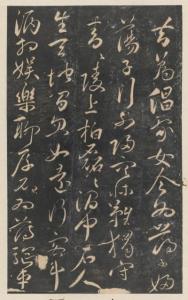 昔為倡家女今為蕩子婦
蕩子行不歸空床難獨守
青青陵上柏磊磊澗中石人
生天地間忽如遠行客斗
酒相娛樂聊厚不為薄驅車